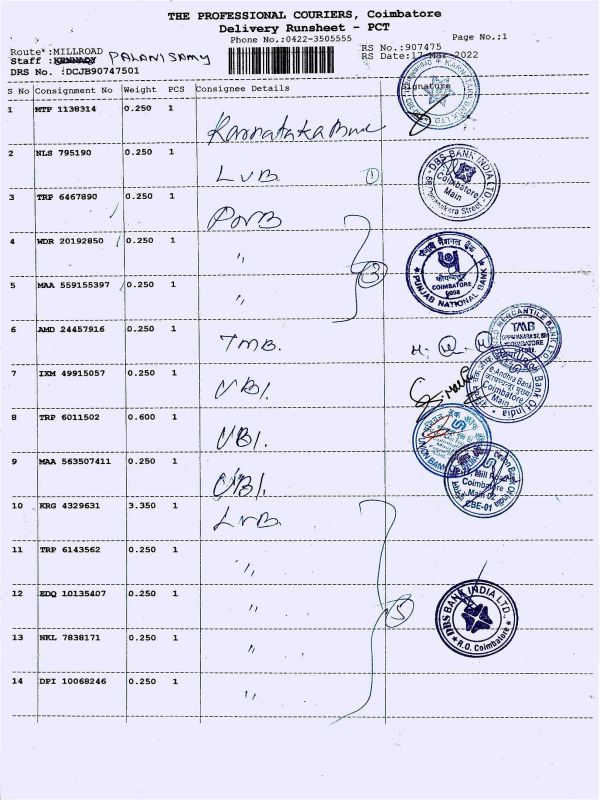 THE PROFESSIONAL COURIERS, Coimbatore
Delivery Runsheet - PCT
Phone No.:0422-3505555
Page No.;1
Route :MILLROAD
Staff : PALANISAMY
DRS No. :DCJB90747501
RS No.:907475
RS Date:17-Mar-2022
S No Consignment No Weight PCS Consignee Details Signature
1 MTP 1138314 0.250 1
Karnataka Bank
2 NLS 795190 0.250 1
LVB. 1
3 TRP 6467890 0.250 1
PNB
4 WDR 20192850 0.250 1
"
3
5 MAA 559155397 0.250 1
"
6 AMD 24457916 0.250 1
TMB.
7 IXM 49915057 0.250 1
UBI.
8 TRP 6011502 0.600 1
UBI.
9 MAA 563507411 0.250 1
UBI.
10 KRG 4329631 3.350 1
LVB.
11 TRP 6143562 0.250 1
"
12 EDQ 10135407 0.250 1
"
5
13 NKL 7838171 0.250 1
"
14 DPI 10068246 0.250 1
"
DBS BANK INDIA LTD.
Coimbatore
Main
पंजाब नैशनल बैंक
COIMBATORE
PUNJAB NATIONAL BANK
MERCANTILE BANK LTD
TMB
COIMBATORE
e Andhra Bank
Coimbatore
Main
Bank Of India
Mill Road
Coimbatore
Main 02
CBE-01
DBS BANK INDIA LTD.,
R.O. Coimbatore